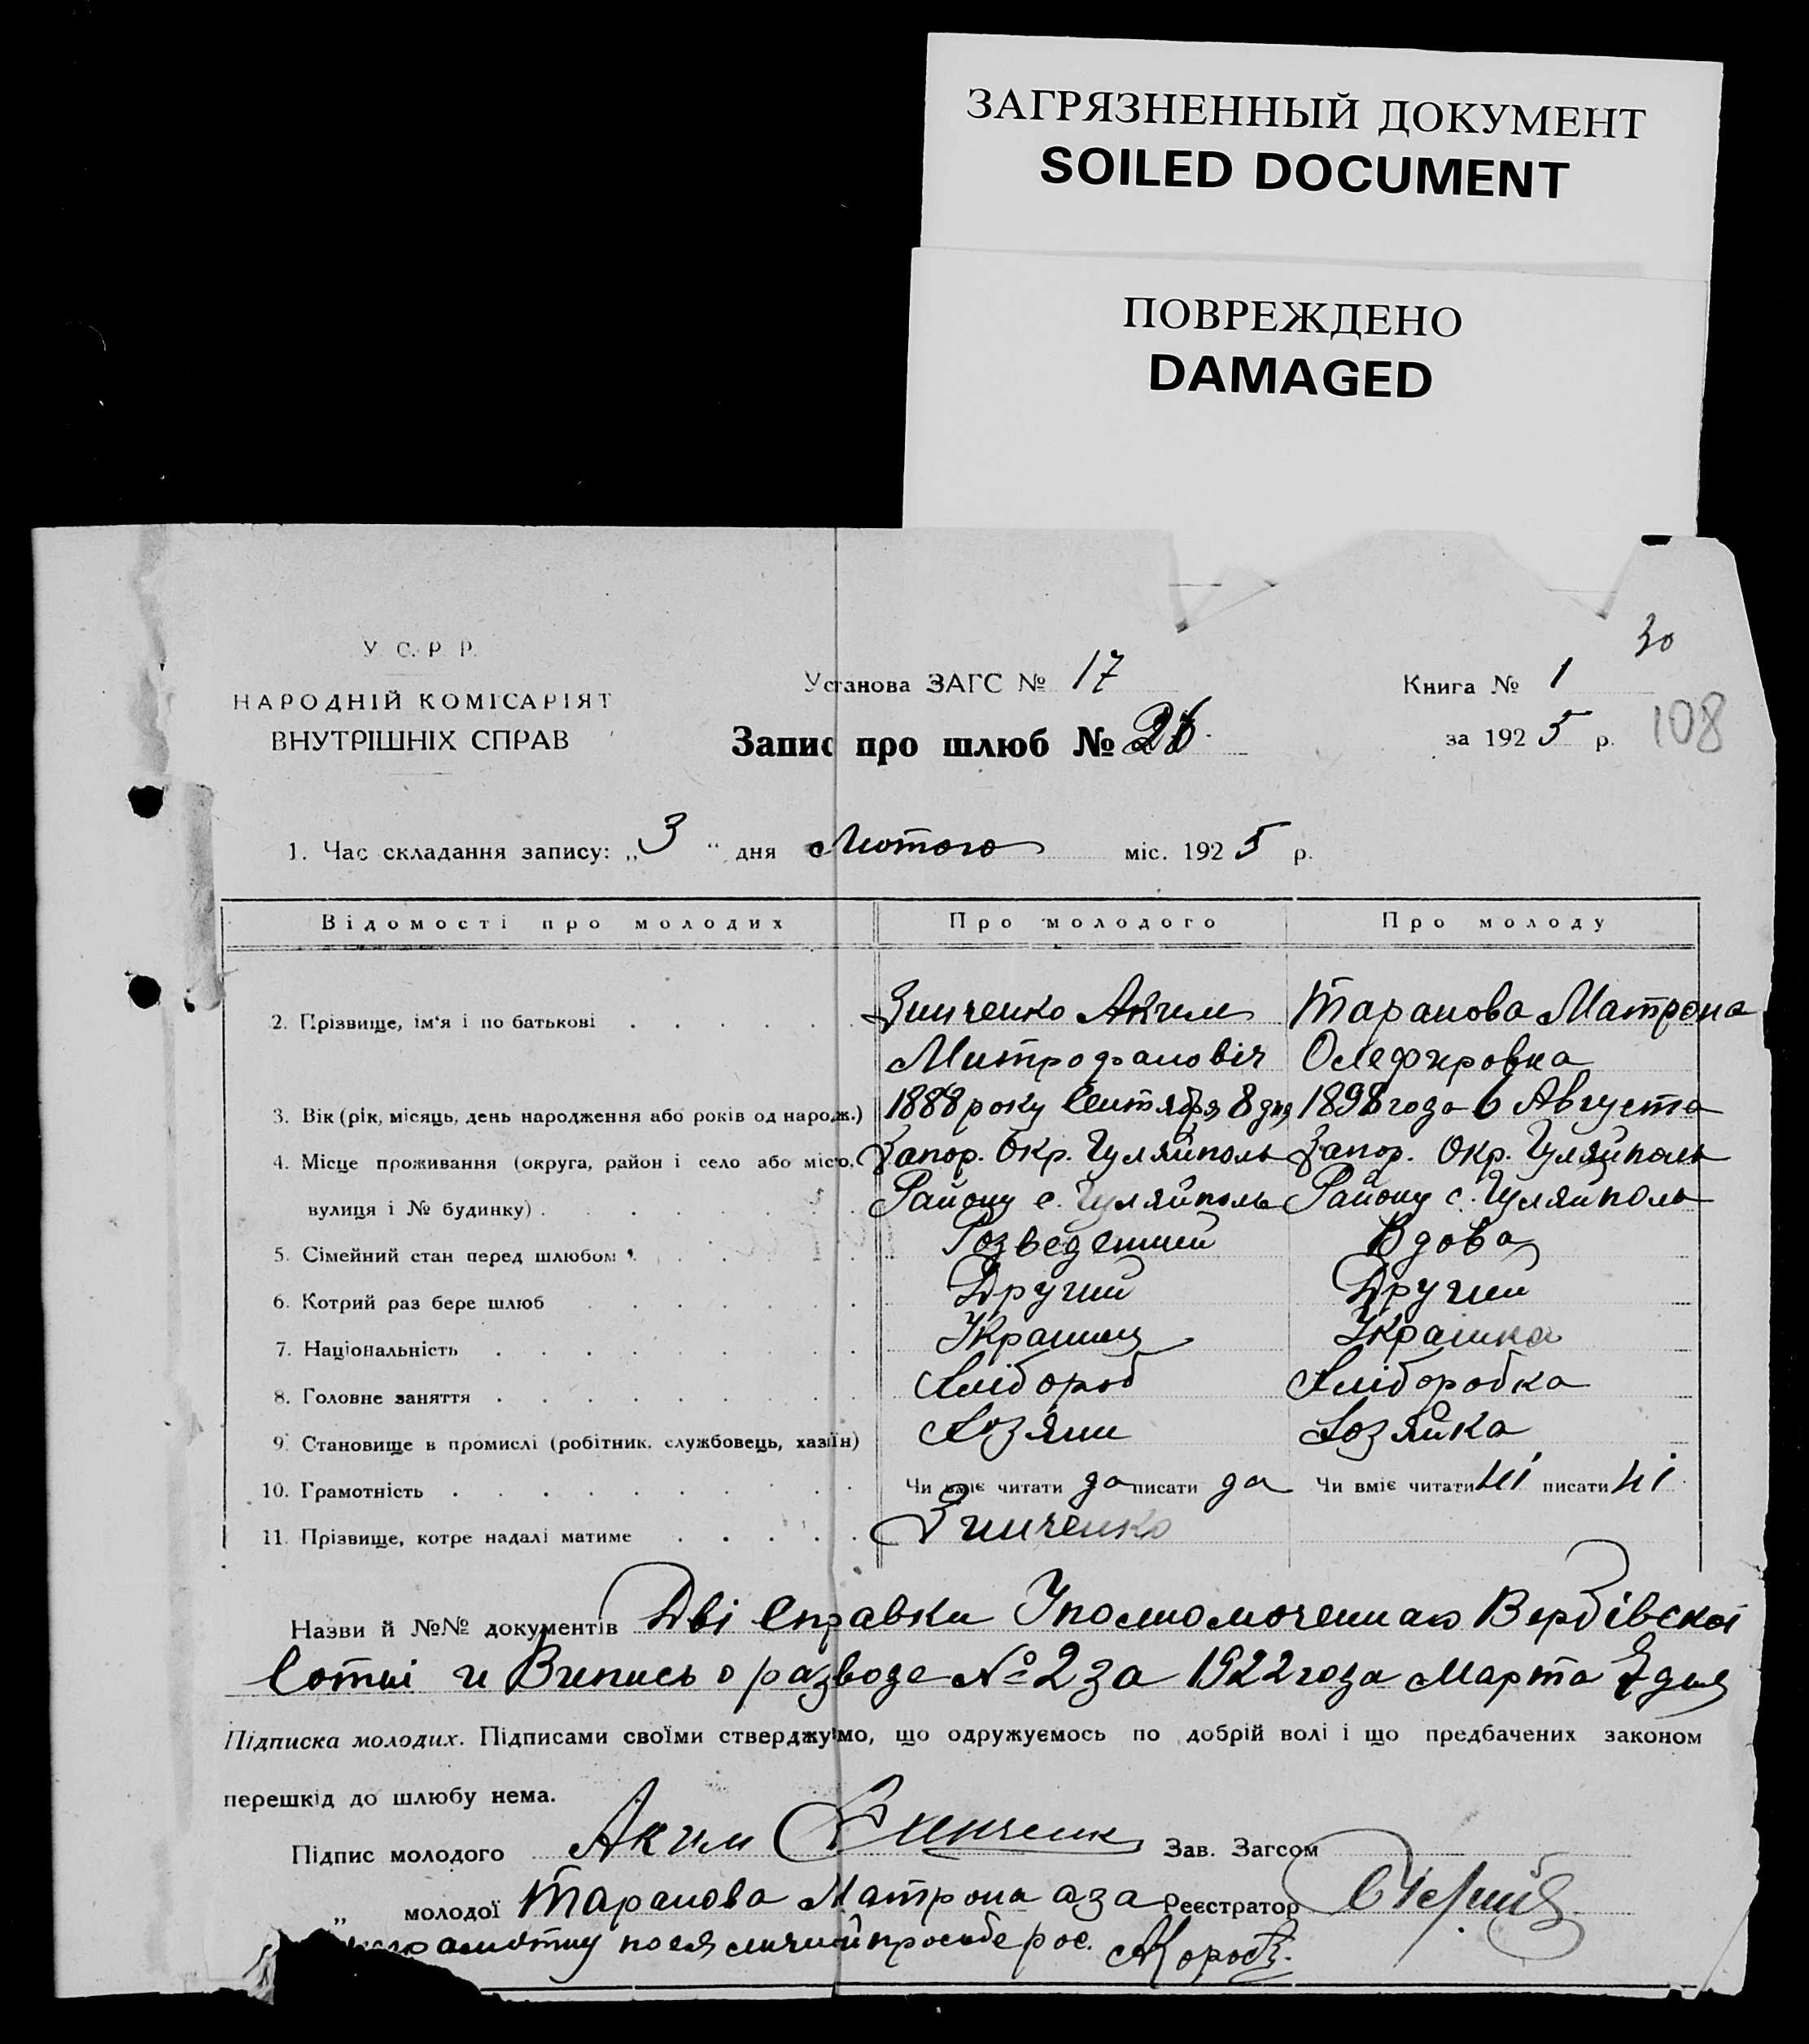 ЗАГРЯЗНЕННЫЙ ДОКУМЕНТ
SOILED DOCUMENT
ПОВРЕЖДЕНО
DAMAGED
30
У. С. Р. Р.
НАРОДНІЙ КОМІСАРІЯТ
ВНУТРІШНІХ СПРАВ
Установа ЗАГС № 17
Книга № 1
Запис про шлюб №
за 1925 р.
108
1. Час складання запису: „3" дня Лютого міс. 1925 р.
Відомості про молодих Про молодого Про молоду
2. Прізвище, ім'я і по батькові Зинченко Аким Таранова Матрона
Митрофановіч Олефировна
3. Вік (рік, місяць, день народження або років од народж.) 1888 року Сентября 8 дня 1898 года 6 Августа
4. Місце проживання (округа, район і село або місто, Запор. Окр. Гуляйполь Запор. Окр. Гуляйполь
вулиця і № будинку) Району с. Гуляйполь Району с. Гуляйполь
5. Сімейний стан перед шлюбом Розведенний Вдова
6. Котрий раз бере шлюб Другий Другий
7. Національність Украинец Украинка
8. Головне заняття Хлібороб Хліборобка
9. Становище в промислі (робітник, службовець, хазяїн) Хозяин Хозяйка
10. Грамотність Чи вміє читати да писати да Чи вміє читати ні писати ні
11. Прізвище, котре надалі матиме Зинченко
Назви й №№ документів Дві справки Уполномоченнаго Вербівскоі
Сотні и Випись о разводе № 2 за 1922 года Марта 7 дня
Підписка молодих. Підписами своїми стверджуємо, що одружуємось по добрій волі і що предбачених законом
перешкід до шлюбу нема.
Підпис молодого Аким Зинченк Зав. Загсом
„ молодої Таранова Матрона а за Реєстратор
неграмотну по ея личний просьбе рос.